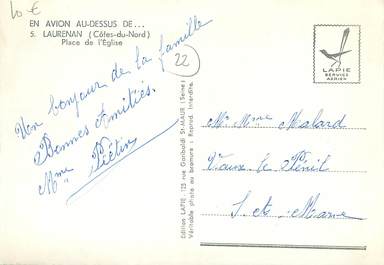 10 €
EN AVION AU-DESSUS DE...
5. LAURENAN (Côtes-du-Nord)
Place de l'Eglise
22
Un bonjour de la famille
Bonnes Amitiés.
Mme Piétin
Edition LAPIE : 125 rue Garibaldi St-MAUR (Seine)
Véritable photo au bromure : Reprod. Interdite.
LAPIE
SERVICE
AERIEN
Mr Mme Malard
Vaux le Pénil
S. et. Marne